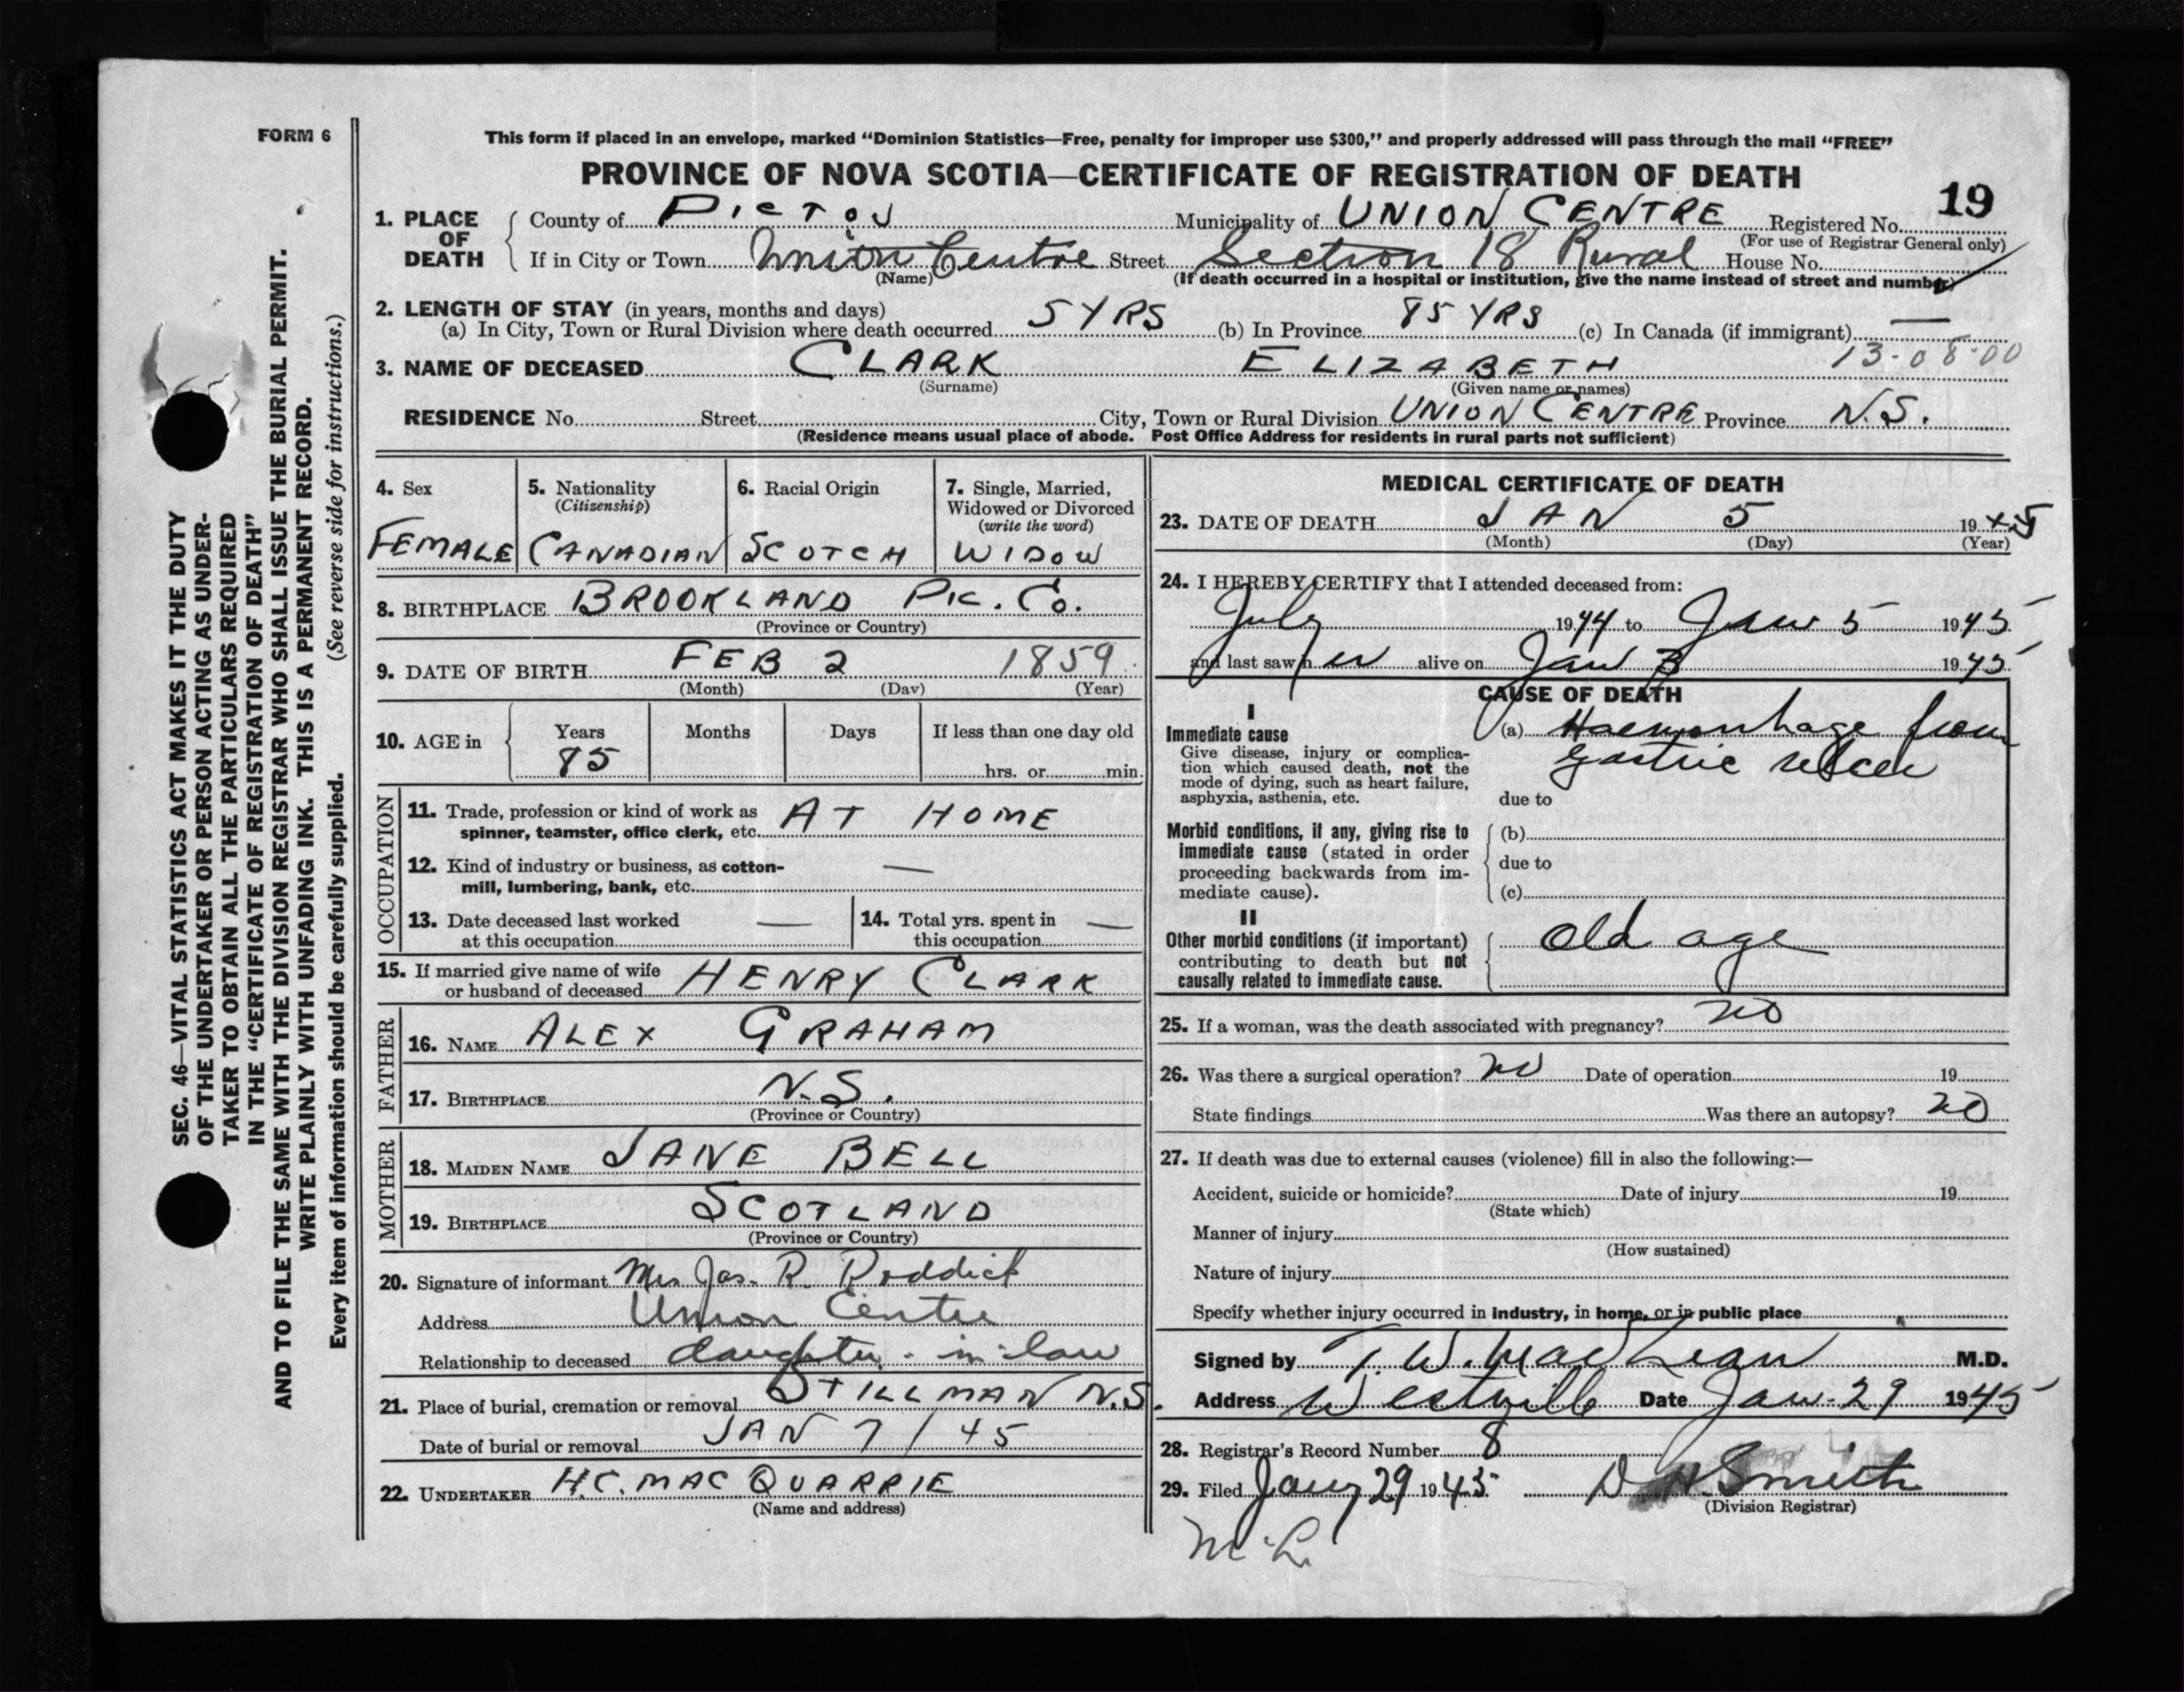 FORM 6
This form if placed in an envelope, marked “Dominion Statistics—Free, penalty for improper use $300,” and properly addressed will pass through the mail “FREE”
PROVINCE OF NOVA SCOTIA—CERTIFICATE OF REGISTRATION OF DEATH
19
1. PLACE OF DEATH
County of PICTOU Municipality of UNION CENTRE Registered No.
(For use of Registrar General only)
If in City or Town Union Centre Street Section 18 Rural House No.
(Name) (If death occurred in a hospital or institution, give the name instead of street and number)
2. LENGTH OF STAY (in years, months and days)
(a) In City, Town or Rural Division where death occurred 5 YRS (b) In Province 85 YRS (c) In Canada (if immigrant) —
13-08-00
3. NAME OF DECEASED CLARK ELIZABETH
(Surname) (Given name or names)
RESIDENCE No. Street City, Town or Rural Division UNION CENTRE Province N.S.
(Residence means usual place of abode. Post Office Address for residents in rural parts not sufficient)
4. Sex
FEMALE
5. Nationality
(Citizenship)
CANADIAN
6. Racial Origin
SCOTCH
7. Single, Married,
Widowed or Divorced
(write the word)
WIDOW
8. BIRTHPLACE BROOKLAND PIC. CO.
(Province or Country)
9. DATE OF BIRTH FEB 2 1859
(Month) (Day) (Year)
10. AGE in
Years Months Days If less than one day old
85 hrs. or min.
OCCUPATION
11. Trade, profession or kind of work as
spinner, teamster, office clerk, etc. AT HOME
12. Kind of industry or business, as cotton-
mill, lumbering, bank, etc. —
13. Date deceased last worked
at this occupation —
14. Total yrs. spent in
this occupation —
15. If married give name of wife
or husband of deceased HENRY CLARK
FATHER
16. NAME ALEX GRAHAM
17. BIRTHPLACE N.S.
(Province or Country)
MOTHER
18. MAIDEN NAME JANE BELL
19. BIRTHPLACE SCOTLAND
(Province or Country)
20. Signature of informant Mrs Jas. R. Roddick
Address Union Centre
Relationship to deceased daughter-in-law
21. Place of burial, cremation or removal STILLMAN N.S.
Date of burial or removal JAN 7 / 45
22. UNDERTAKER H.C. MACQUARRIE
(Name and address)
MEDICAL CERTIFICATE OF DEATH
23. DATE OF DEATH JAN 5 1945
(Month) (Day) (Year)
24. I HEREBY CERTIFY that I attended deceased from:
July 1944 to Jan 5 1945
and last saw her alive on Jan 3 1945
CAUSE OF DEATH
I
Immediate cause
Give disease, injury or complica-
tion which caused death, not the
mode of dying, such as heart failure,
asphyxia, asthenia, etc.
(a) Haemorrhage from
gastric ulcer
due to
Morbid conditions, if any, giving rise to
immediate cause (stated in order
proceeding backwards from im-
mediate cause).
(b)
due to
(c)
II
Other morbid conditions (if important)
contributing to death but not
causally related to immediate cause.
Old age
25. If a woman, was the death associated with pregnancy? no
26. Was there a surgical operation? no Date of operation 19
State findings Was there an autopsy? no
27. If death was due to external causes (violence) fill in also the following:—
Accident, suicide or homicide? Date of injury 19
(State which)
Manner of injury
(How sustained)
Nature of injury
Specify whether injury occurred in industry, in home, or in public place
Signed by T. W. MacLean M.D.
Address Westville Date Jan. 29 1945
28. Registrar's Record Number 8
29. Filed Jany 29 1945 D H. Smith
(Division Registrar)
SEC. 46—VITAL STATISTICS ACT MAKES IT THE DUTY
OF THE UNDERTAKER OR PERSON ACTING AS UNDER-
TAKER TO OBTAIN ALL THE PARTICULARS REQUIRED
IN THE “CERTIFICATE OF REGISTRATION OF DEATH”
AND TO FILE THE SAME WITH THE DIVISION REGISTRAR WHO SHALL ISSUE THE BURIAL PERMIT.
WRITE PLAINLY WITH UNFADING INK. THIS IS A PERMANENT RECORD.
Every item of information should be carefully supplied. (See reverse side for instructions.)